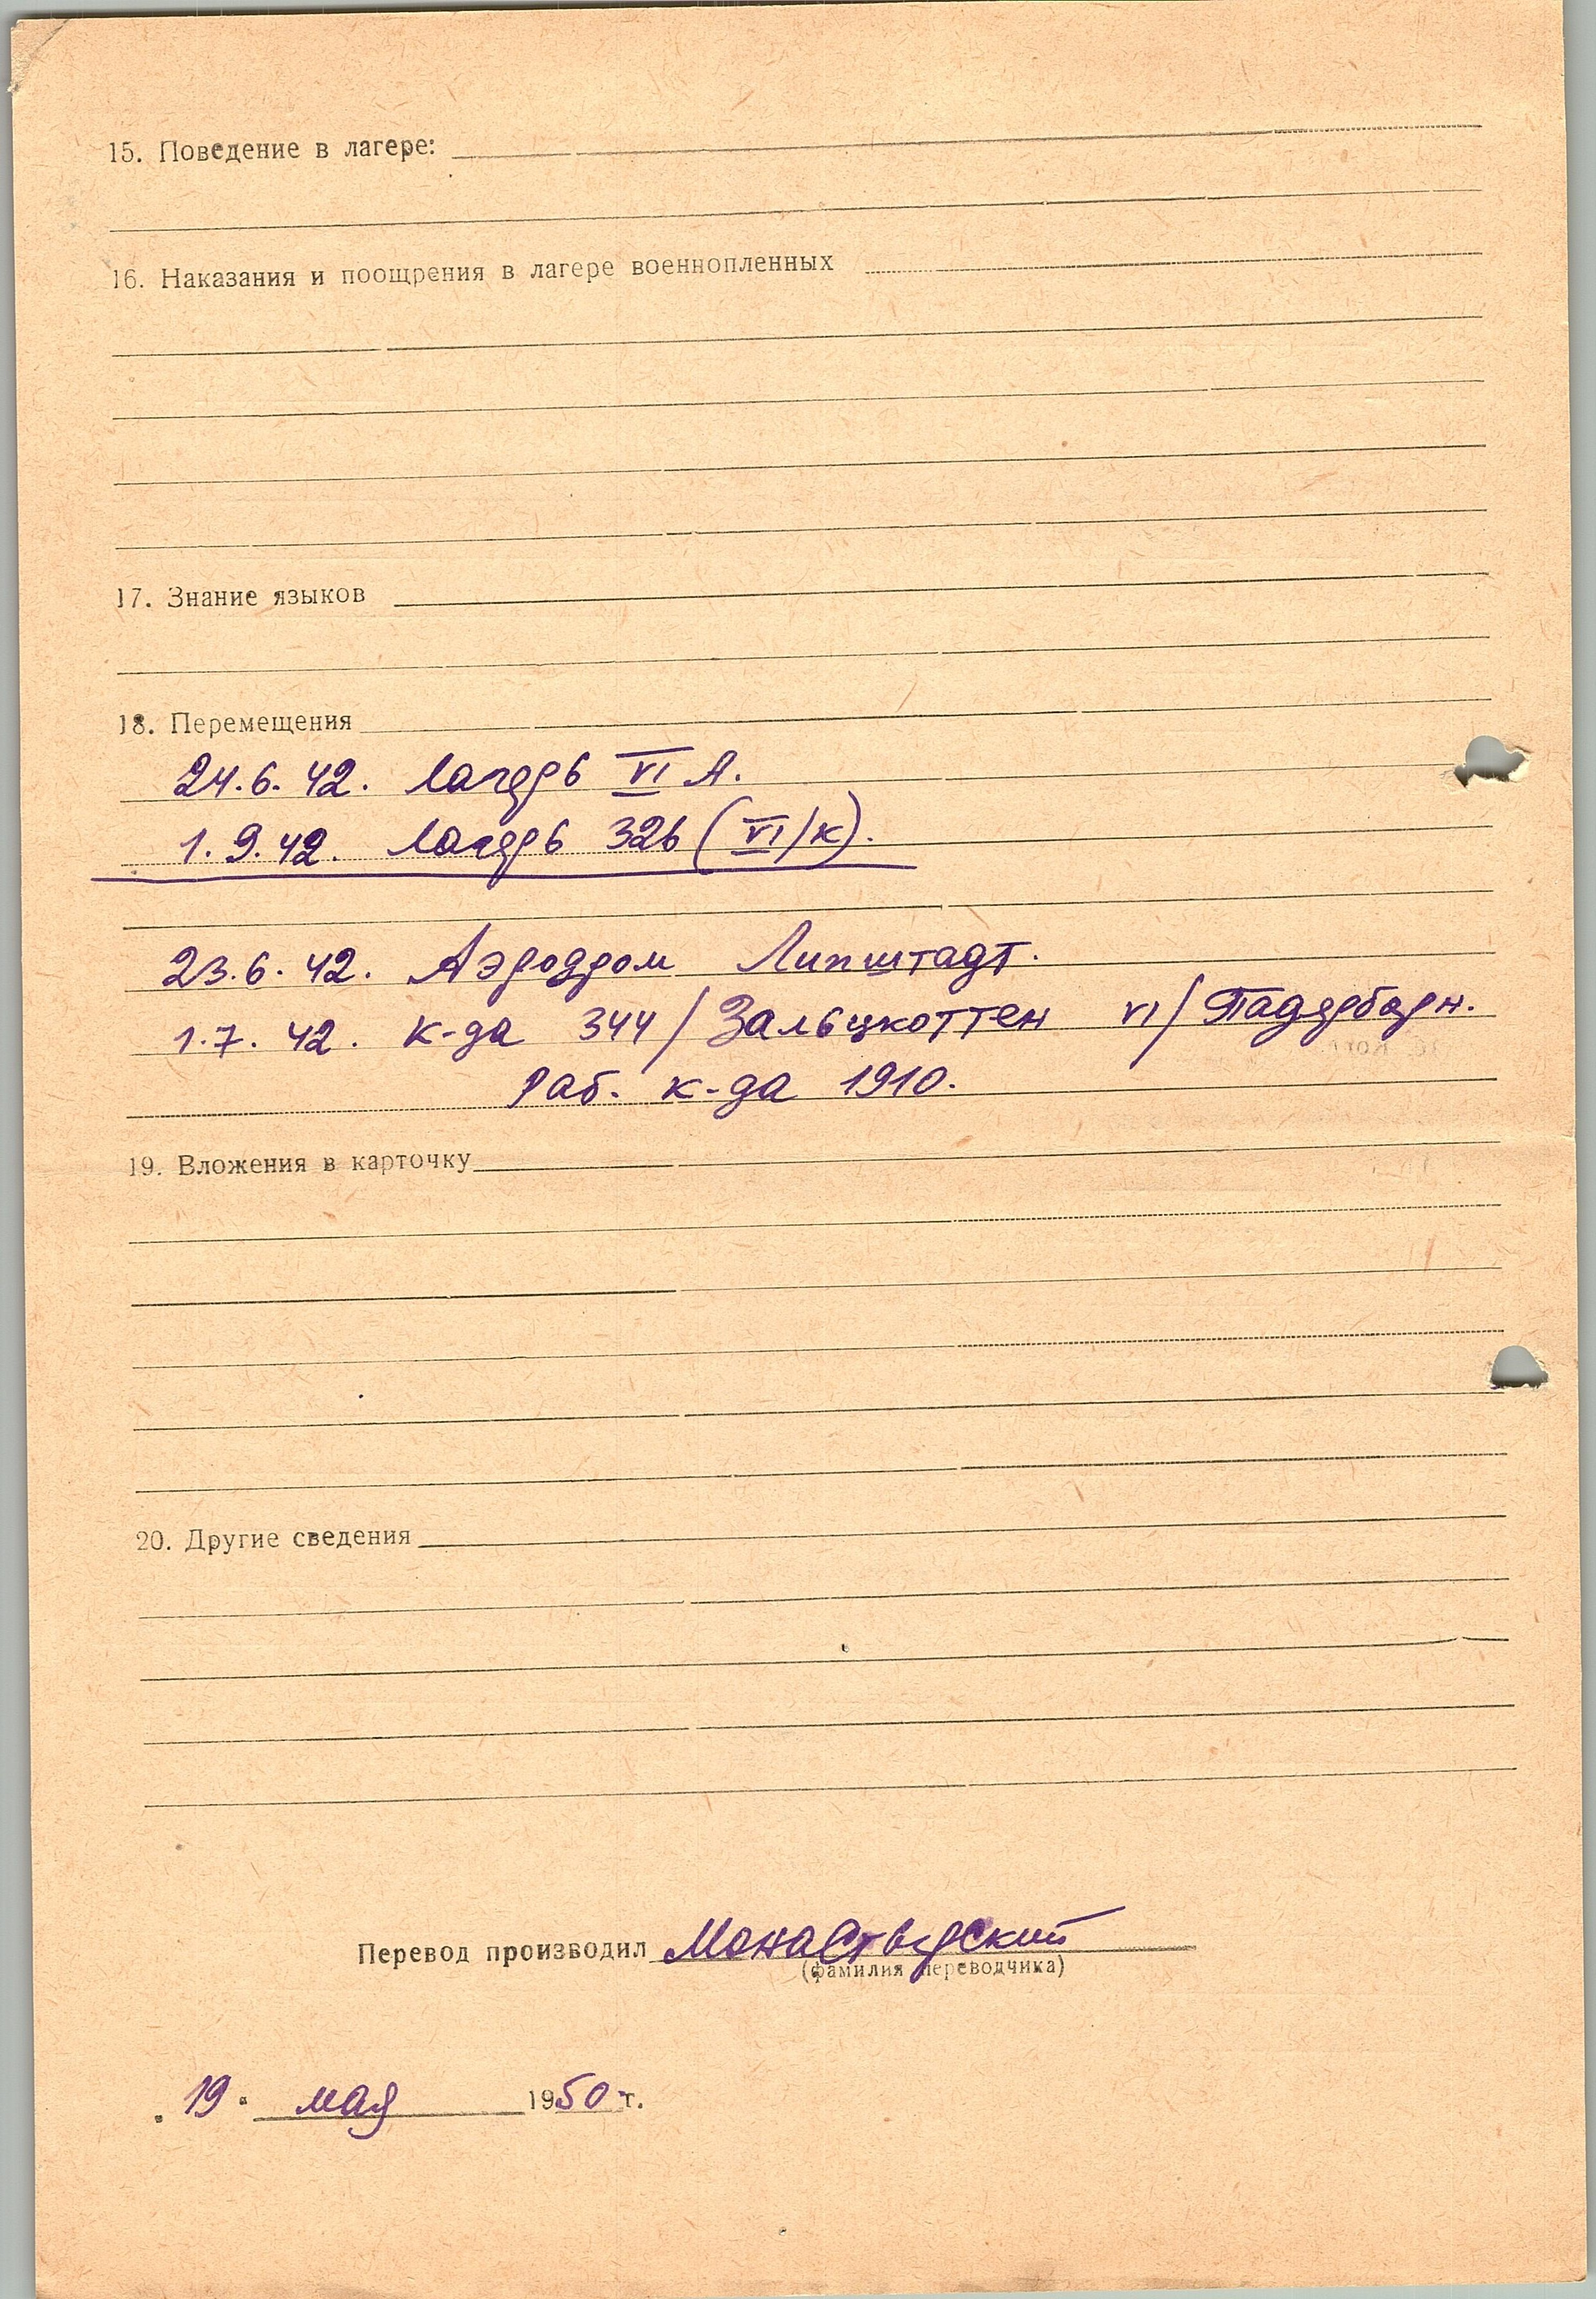 15. Поведение в лагере:
16. Наказания и поощрения в лагере военнопленных
17. Знание языков
18. Перемещения
24.6.42. лагерь VI А.
1.9.42. лагерь 326 (VI/к).
23.6.42. Аэродром Липштадт.
1.7.42. к-да 344/Зальцкоттен VI/Падерборн.
Раб. к-да 1910.
19. Вложения в карточку
20. Другие сведения
Перевод производил Монастырский
(фамилия переводчика)
19. мая 1950 г.